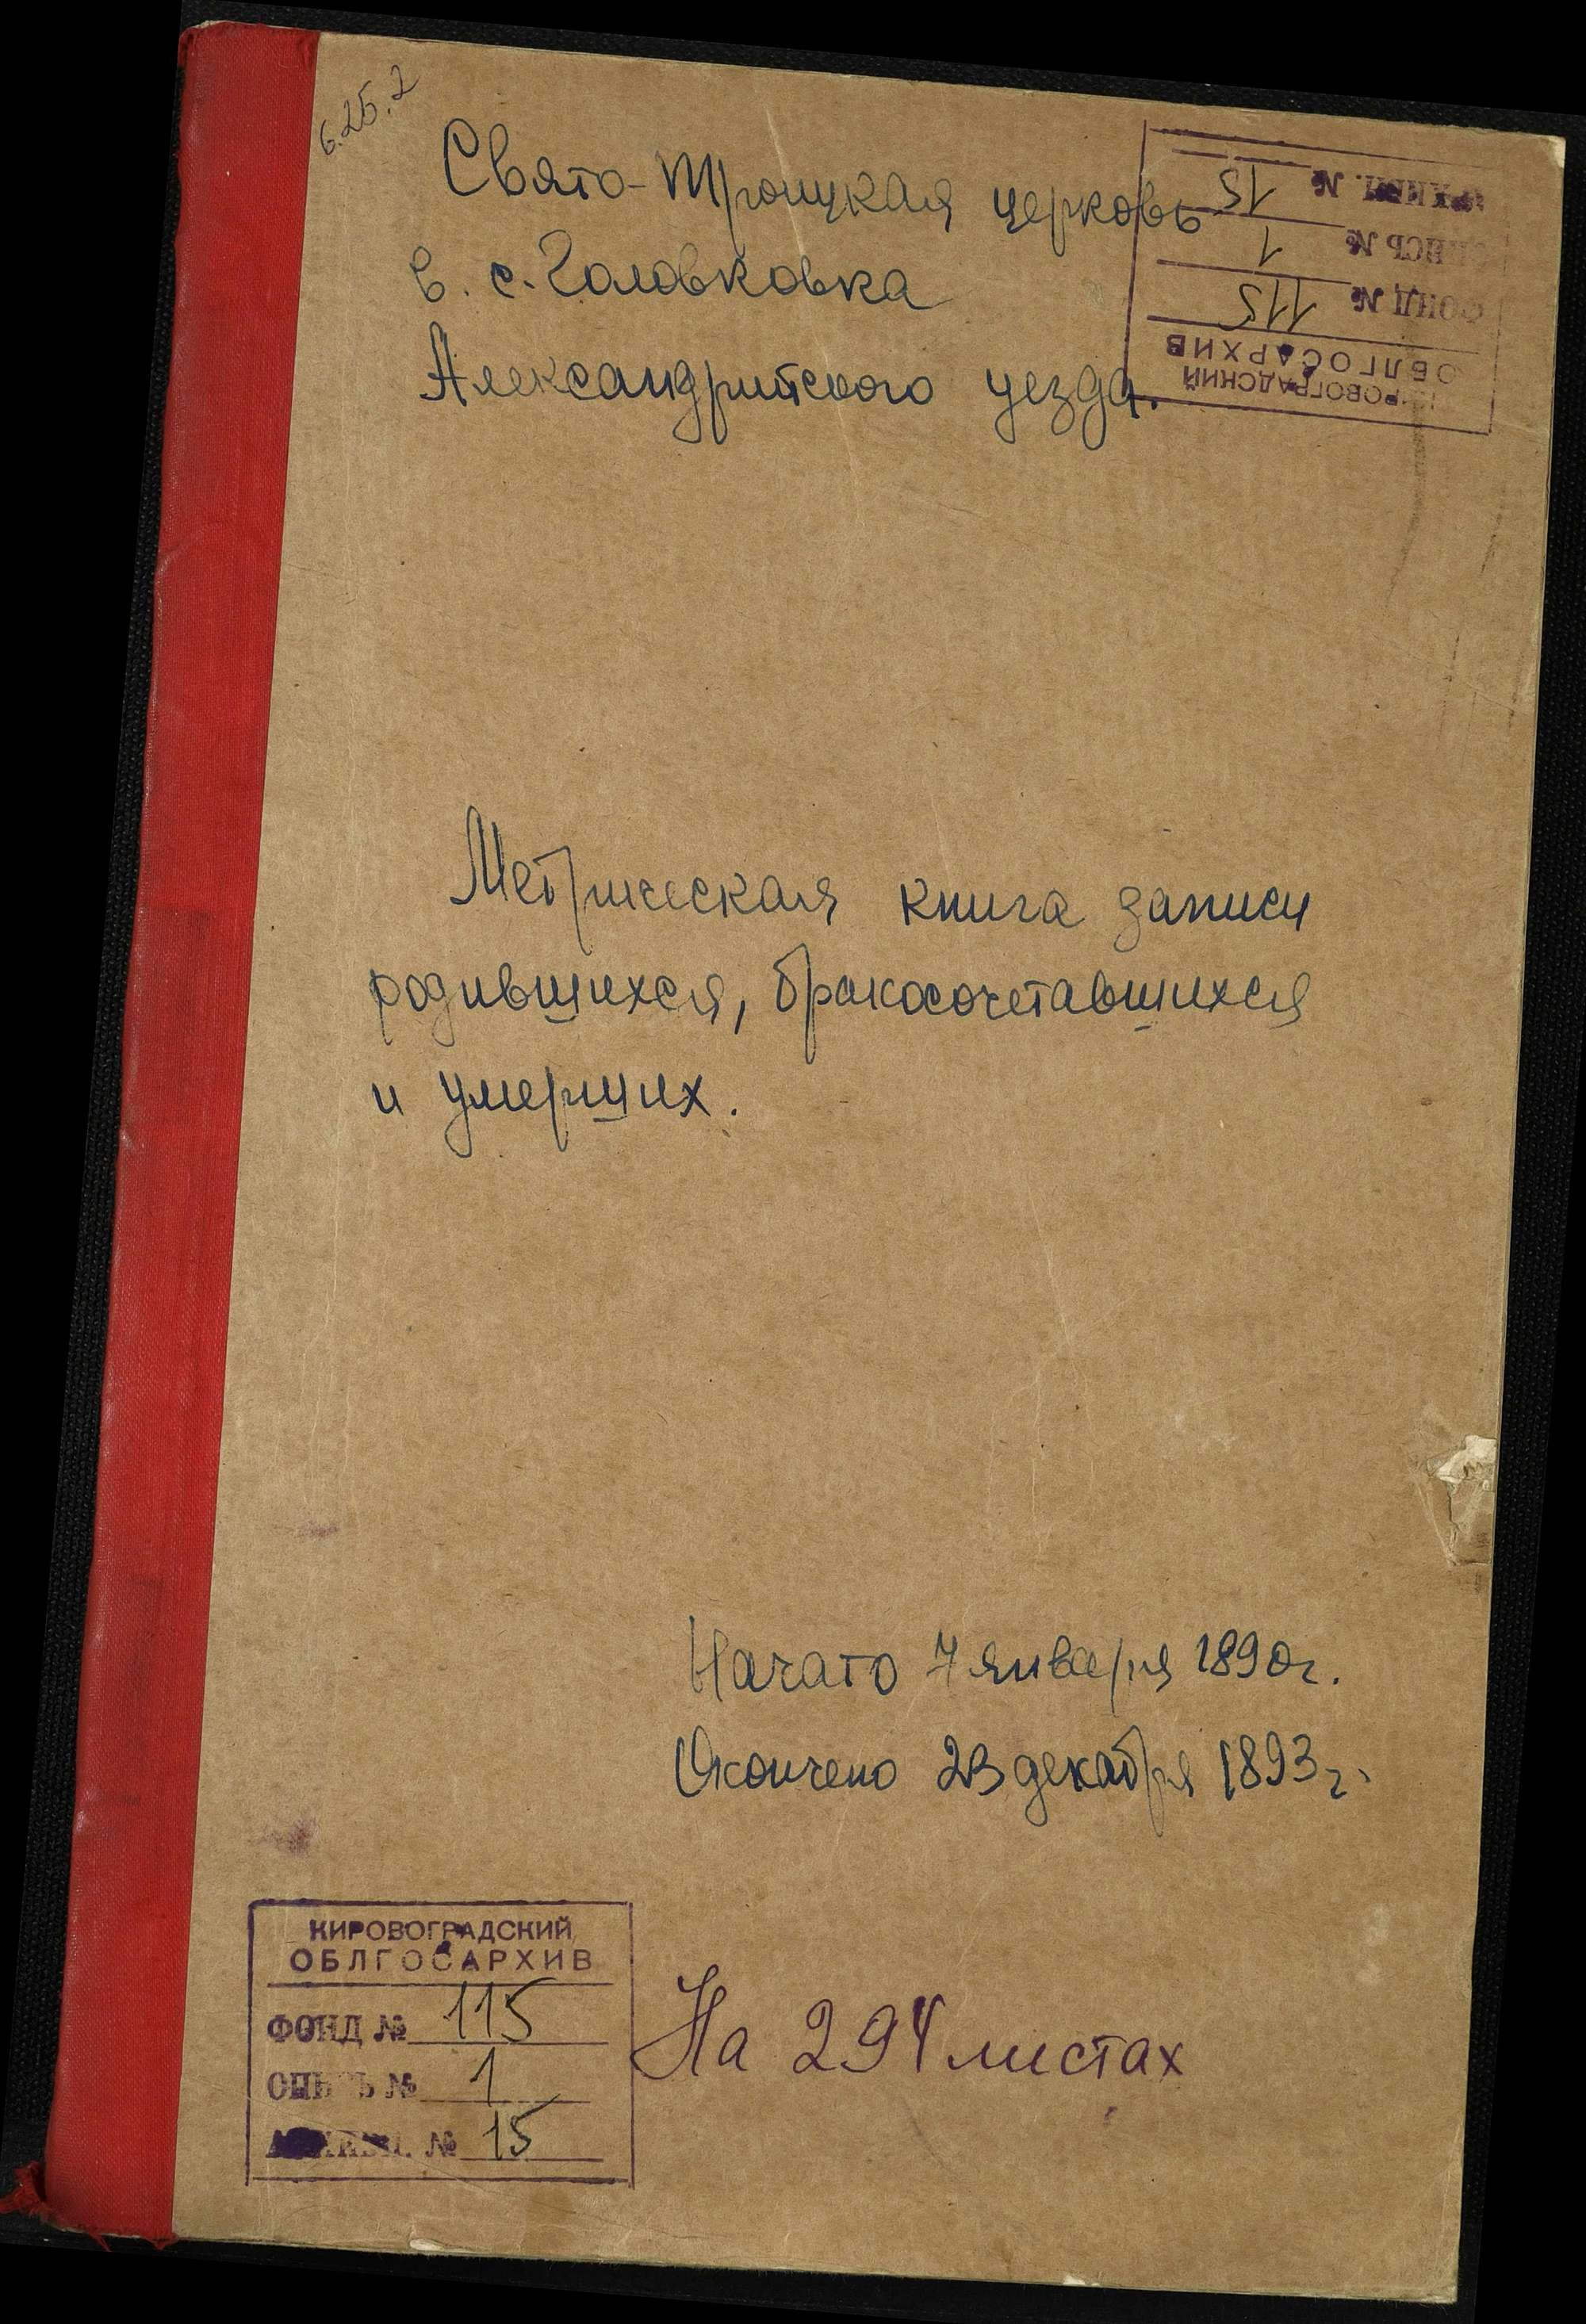 6.25.2
Свято-Троицкая церковь
в. с. Головковка
Александрийского уезда.
КИРОВОГРАДСКИЙ
ОБЛГОСАРХИВ
ФОНД № 115
ОПИСЬ № 1
№ 15
Метрическая книга записи
родившихся, бракосочетавшихся
и умерших.
Начато 7 января 1890г.
Окончено 23 декабря 1893г.
КИРОВОГРАДСКИЙ
ОБЛГОСАРХИВ
ФОНД № 115
ОПИСЬ № 1
№ 15
На 294 листах